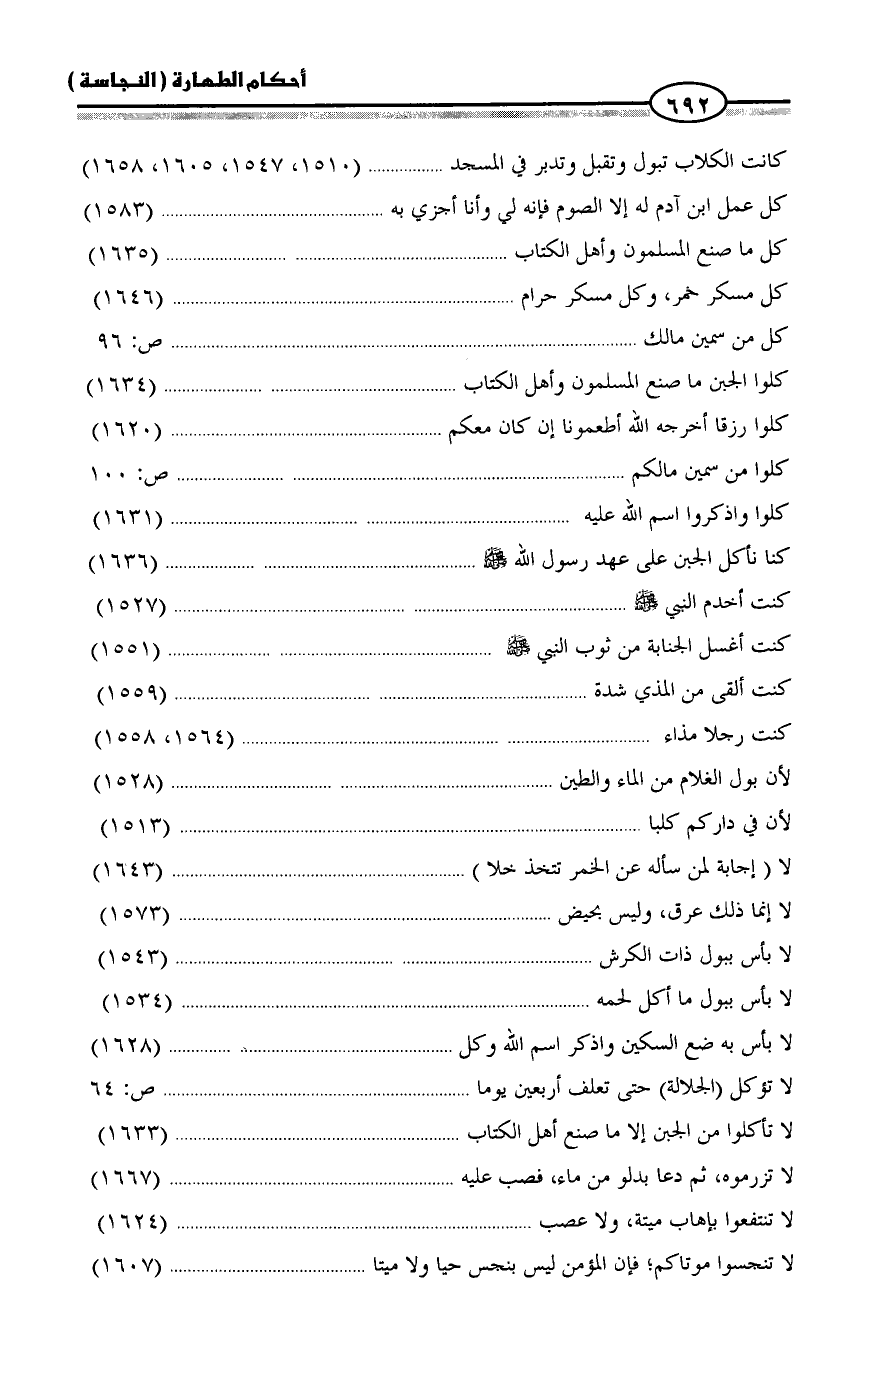 أحكام الطهارة (النجاسة)
٦٩٢
كانت الكلاب تبول وتقبل وتدبر في المسجد ................. (١٥١٠، ١٥٤٧، ١٦٠٥، ١٦٥٨)
كل عمل ابن آدم له إلا الصوم فإنه لي وأنا أجزي به ................. (١٥٨٣)
كل ما صنع المسلمون وأهل الكتاب ................. (١٦٣٥)
كل مسكر خمر، وكل مسكر حرام ................. (١٦٤٦)
كل من سمين مالك ................. ص: ٩٦
كلوا الجبن ما صنع المسلمون وأهل الكتاب ................. (١٦٣٤)
كلوا رزقا أخرجه الله أطعمونا إن كان معكم ................. (١٦٢٠)
كلوا من سمين مالكم ................. ص: ١٠٠
كلوا واذكروا اسم الله عليه ................. (١٦٣١)
كنا نأكل الجبن على عهد رسول الله ﷺ ................. (١٦٣٦)
كنت أخدم النبي ﷺ ................. (١٥٢٧)
كنت أغسل الجنابة من ثوب النبي ﷺ ................. (١٥٥١)
كنت ألقى من المذي شدة ................. (١٥٥٩)
كنت رجلا مذاء ................. (١٥٦٤، ١٥٥٨)
لأن بول الغلام من الماء والطين ................. (١٥٢٨)
لأن في داركم كلبا ................. (١٥١٣)
لا ( إجابة لمن سأله عن الخمر تتخذ خلا ) ................. (١٦٤٣)
لا إنما ذلك عرق، وليس بحيض ................. (١٥٧٣)
لا بأس ببول ذات الكرش ................. (١٥٤٣)
لا بأس ببول ما أكل لحمه ................. (١٥٣٤)
لا بأس به ضع السكين واذكر اسم الله وكل ................. (١٦٢٨)
لا تؤكل (الجلالة) حتى تعلف أربعين يوما ................. ص: ٦٤
لا تأكلوا من الجبن إلا ما صنع أهل الكتاب ................. (١٦٣٣)
لا تزرموه، ثم دعا بدلو من ماء، فصب عليه ................. (١٦٦٧)
لا تنتفعوا بإهاب ميتة، ولا عصب ................. (١٦٢٤)
لا تنجسوا موتاكم؛ فإن المؤمن ليس بنجس حيا ولا ميتا ................. (١٦٠٧)